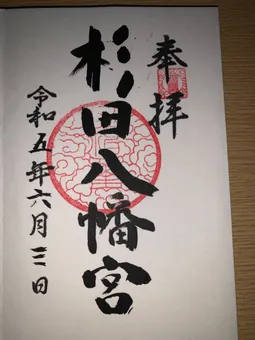 奉拝
杉田八幡宮
令和五年六月三日